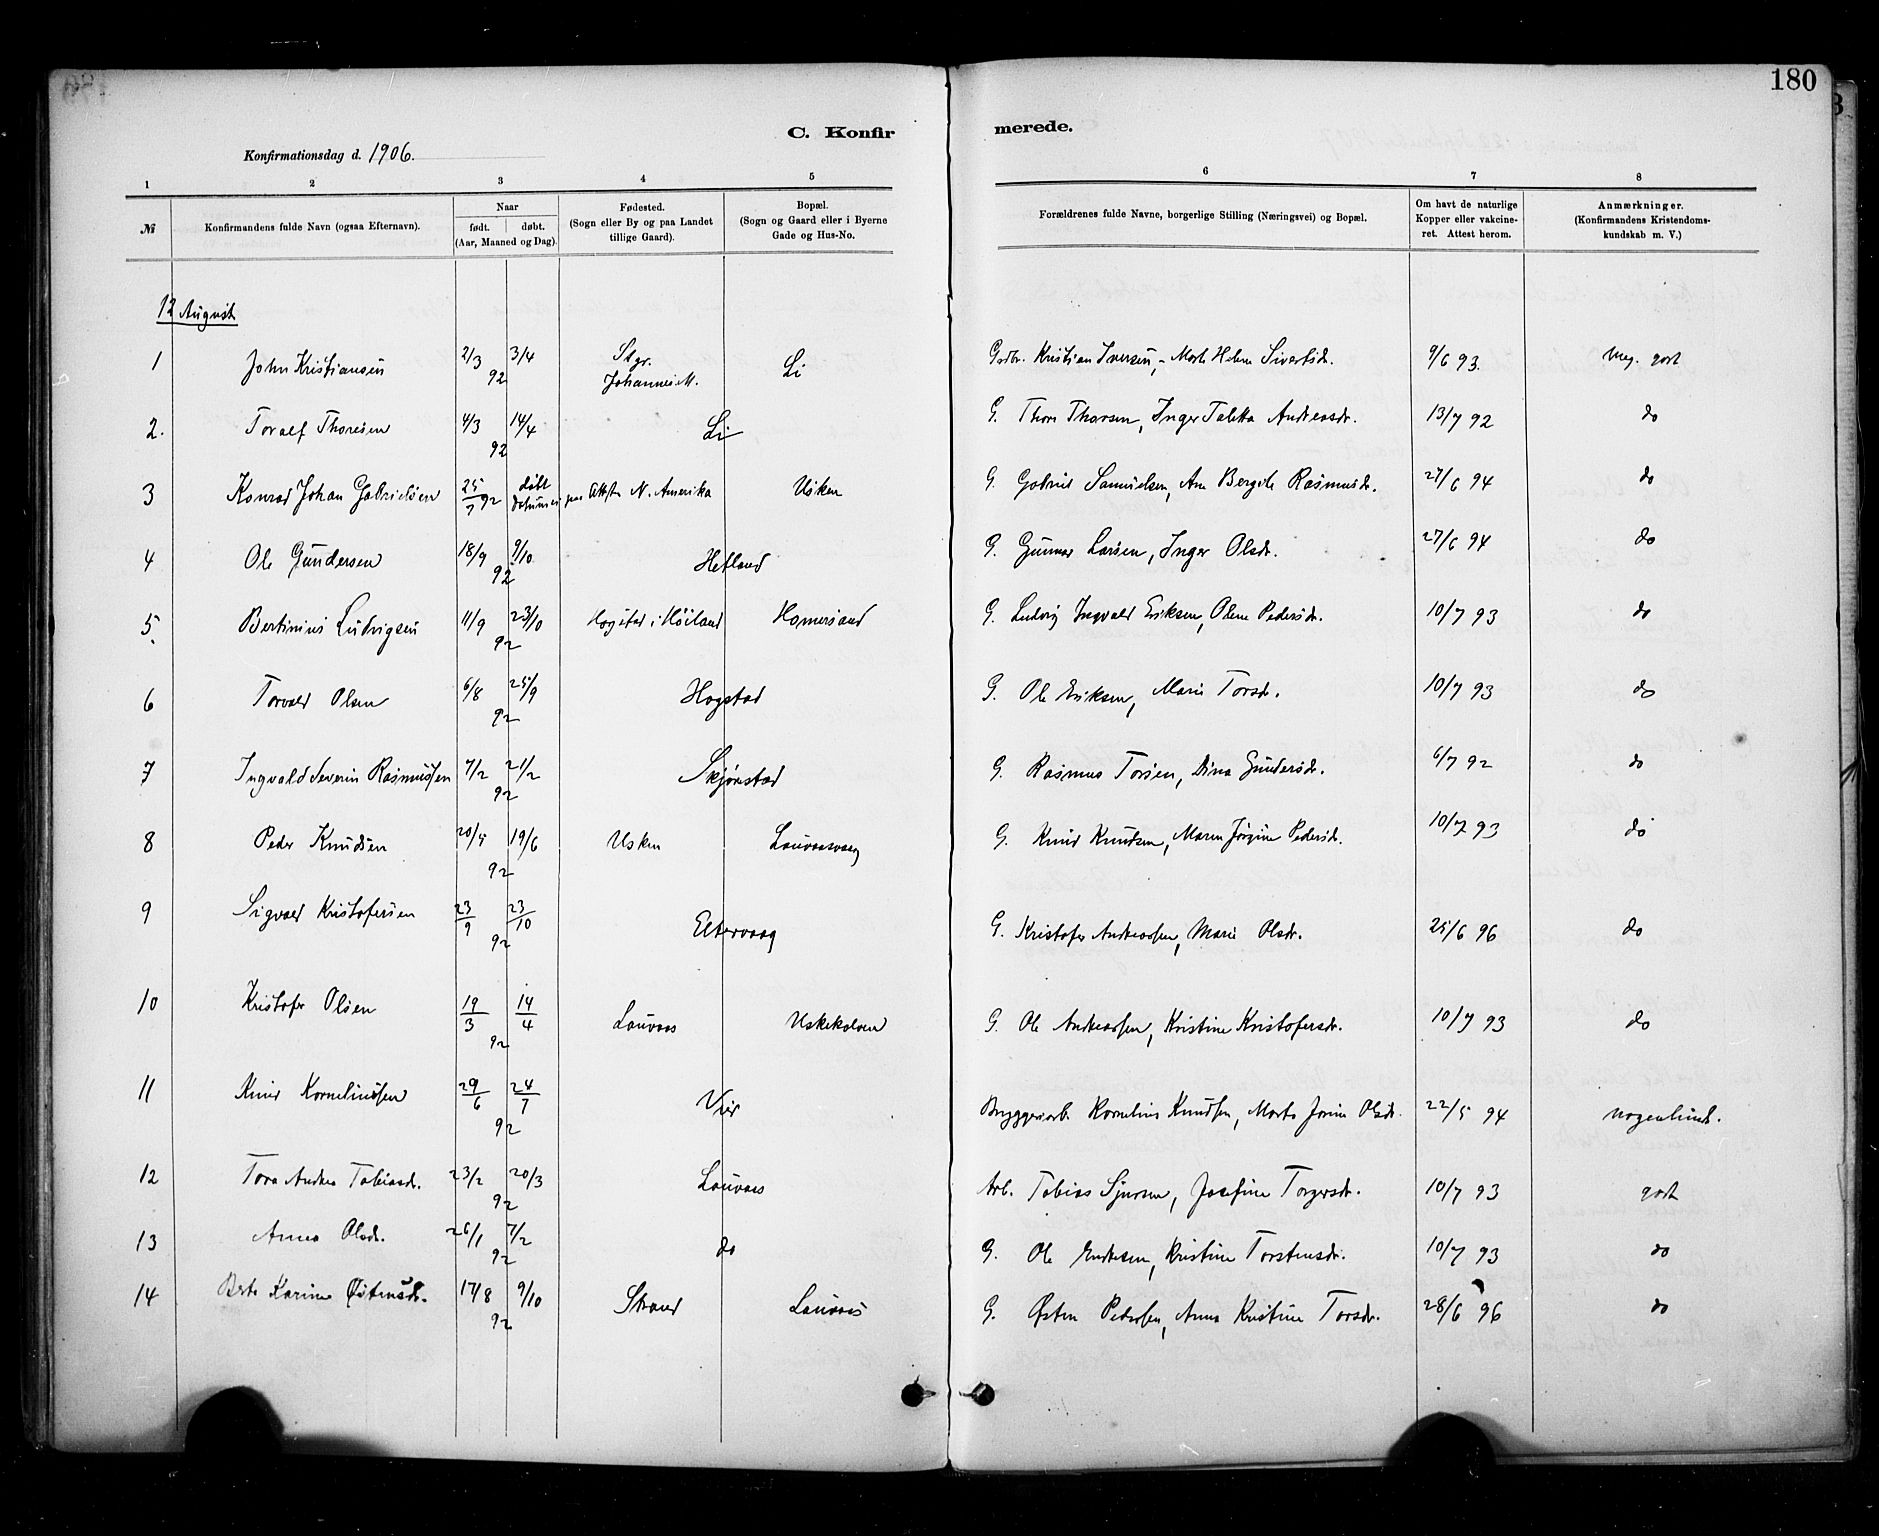 180
C. Konfir merede.
Konfirmationsdag d. 1906.
1 2 3 4 5 6 7 8
№ Konfirmandens fulde Navn (ogsaa Efternavn). Naar født. døbt. (Aar, Maaned og Dag). Fødested. (Sogn eller By og paa Landet tillige Gaard). Bopæl. (Sogn og Gaard eller i Byerne Gade og Hus-No. Forældrenes fulde Navne, borgerlige Stilling (Næringsvei) og Bopæl. Om havt de naturlige Kopper eller vakcineret. Attest herom. Anmærkninger. (Konfirmandens Kristendomskundskab m. V.)
12 August
1 John Kristiansen 2/3 3/4 92 Stgr. Johannes M. Li Grdbr. Kristian Iversen, Mart Helene Sivertsdr. 9/6 93. meg. godt
2. Toralf Thorsen 4/3 14/4 92 Li G. Thore Thorsen, Inger Taletta Andreasdr. 13/7 92 do
3 Konrad Johan Gabrielsen 25/7 92 døbt N. Amerika Usken G. Gabriel Samuelsen, Ane Bergite Rasmusdr. 27/6 94 do
4 Ole Gundersen 18/9 9/10 92 Hetland G. Gunnar Larsen, Inger Olsdr. 27/6 94 do
5. Bertinius Ludvigsen 11/9 23/10 92 Hogstad i Høiland Homersand G. Ludvig Ingvald Eriksen, Olene Pedersdr. 10/7 93 do
6 Torvald Olsen 6/8 25/9 92 Hogstad G. Ole Eriksen, Marie Torsdr. 10/7 93 do
7 Ingvald Severin Rasmussen 7/2 21/2 92 Skjørestad G. Rasmus Torsen, Dina Gundersdr. 6/7 92 do
8 Peder Knudsen 20/5 19/6 92 Usken Lauvaasvaag G. Knud Knudsen, Maren Jørgine Pedersdr. 10/7 93 do
9 Sigvald Kristofersen 23/9 23/10 92 Eltervaag G. Kristofer Andreassen, Marie Olsdr. 25/6 96 do
10 Kristofer Olsen 19/3 14/4 92 Lauvaas Uskekalven G. Ole Andreassen, Kristine Kristofersdr. 10/7 93 do
11 Knud Korneliussen 29/6 24/7 92 Vier Bryggeriarb. Kornelius Knudsen, Marta Jorine Olsdr. 22/5 94 nogenlunde.
12 Tora Andrea Tobiasdr. 23/2 20/3 92 Lauvaas Arb. Tobias Sjursen, Josefine Torgersdr. 10/7 93 godt
13 Anna Olsdr. 26/1 7/2 92 do G. Ole Endresen, Kristine Torstensdr. 10/7 93 do
14 Berte Karine Østensdr. 17/8 9/10 92 Strand Lauvaas G. Østen Pedersen, Anna Kristine Torsdr. 28/6 96 do